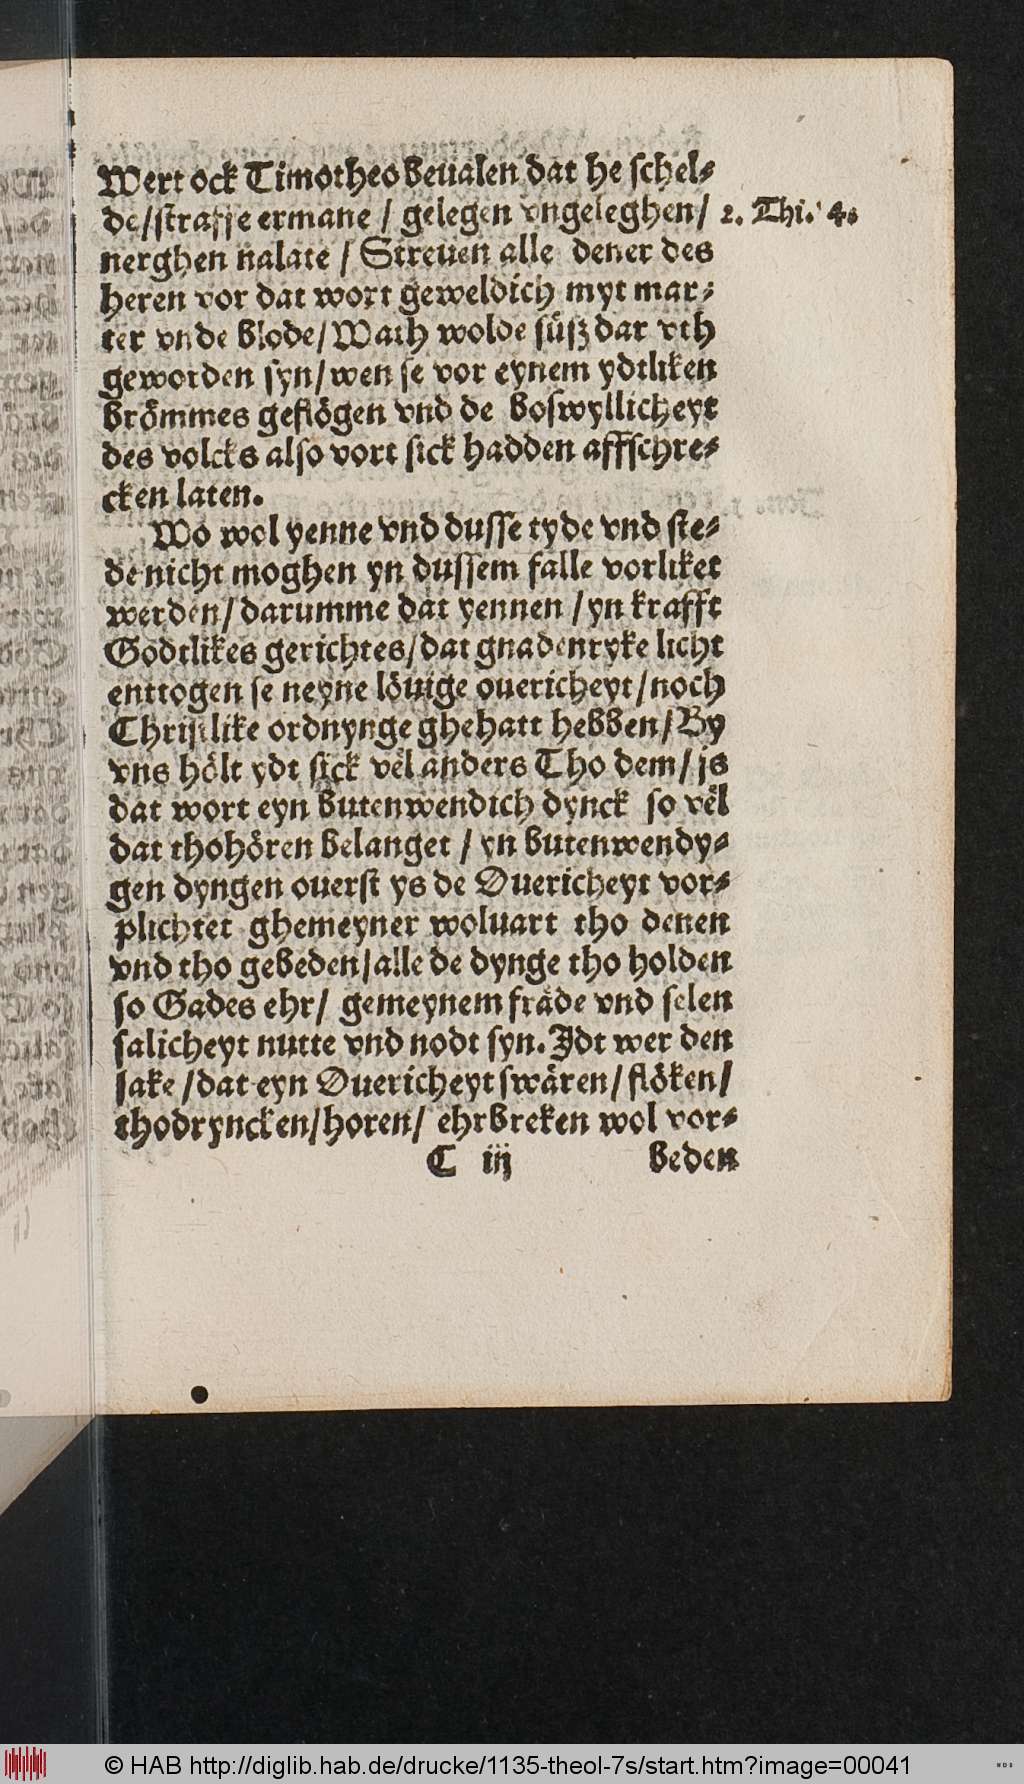 Wert ock Timotheo beualen dat he schel⸗
de/straffe ermane / gelegen vngeleghen/ 2. Thi. 4.
nerghen nalate / Streuen alle dener des
heren vor dat wort geweldich myt mar⸗
ter vnde blode/Wath wolde süsz dar vth
geworden syn/wen se vor eynem ydtliken
brömmes geflögen vnd de boswyllicheyt
des volcks also vort sick hadden affschre⸗
cken laten.
Wo wol yenne vnd dusse tyde vnd ste⸗
de nicht moghen yn dussem falle vorliket
werden/darumme dat yennen /yn krafft
Godtlikes gerichtes/dat gnadenryke licht
enttogen se neyne löuige ouericheyt/noch
Christlike ordnynge ghehatt hebben/By
vns hölt ydt sick vël anders Tho dem/ is
dat wort eyn butenwendich dynck so vël
dat thohören belanget / yn butenwendy⸗
gen dyngen ouerst ys de Ouericheyt vor⸗
plichtet ghemeyner woluart tho denen
vnd tho gebeden/alle de dynge tho holden
so Gades ehr/ gemeynem fräde vnd selen
salicheyt nutte vnd nodt syn. Idt wer den
sake /dat eyn Ouericheyt swären/flöken/
thodryncken/horen/ ehrbreken wol vor⸗
C iij beden
© HAB http://diglib.hab.de/drucke/1135-theol-7s/start.htm?image=00041